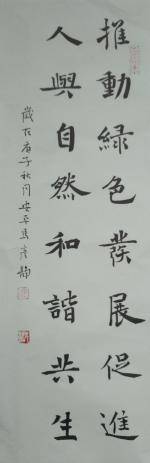 推動綠色發展促進
人與自然和諧共生
歲在庚子秋月安平馬彥靜